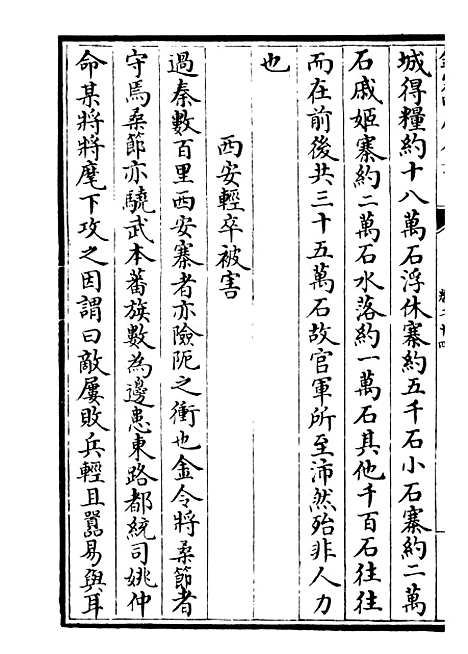 城得糧約十八萬石浮休寨約五千石小石寨約二萬
石戚姬寨約二萬石水落約一萬石其他千百石往往
而在前後共三十五萬石故官軍所至沛然殆非人力
也
西安輕卒被害
過秦數百里西安寨者亦險阨之衝也金令將桑節者
守焉桑節亦驍武本蕃族數為邊患東路都統司姚仲
命某將將麾下攻之因謂曰敵屢敗兵輕且囂易與耳